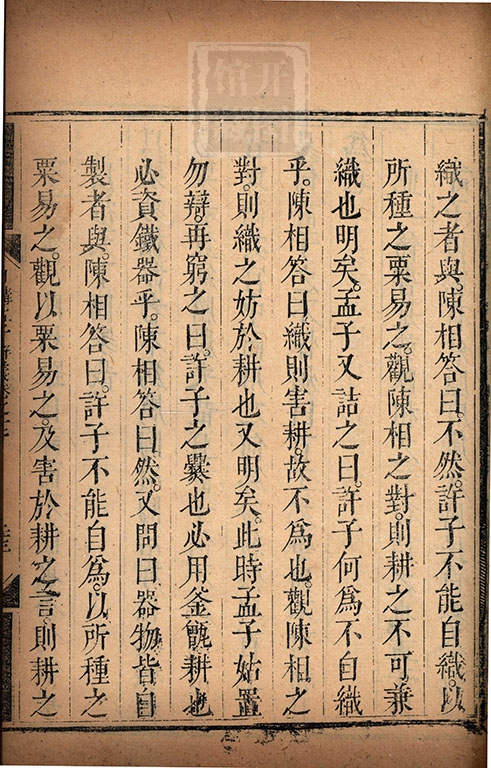 織之者與陳相答曰不然許子不能自織以
所種之粟易之觀陳相之對則耕之不可兼
織也明矣孟子又詰之曰許子何為不自織
乎陳相答曰織則害耕故不為也觀陳相之
對則織之妨於耕也又明矣此時孟子姑置
勿辯再窮之曰許子之爨也必用釜甑耕也
必資鐵器乎陳相答曰然又問曰器物皆自
製者與陳相答曰許子不能自為以所種之
粟易之觀以粟易之及害於耕之言則耕之